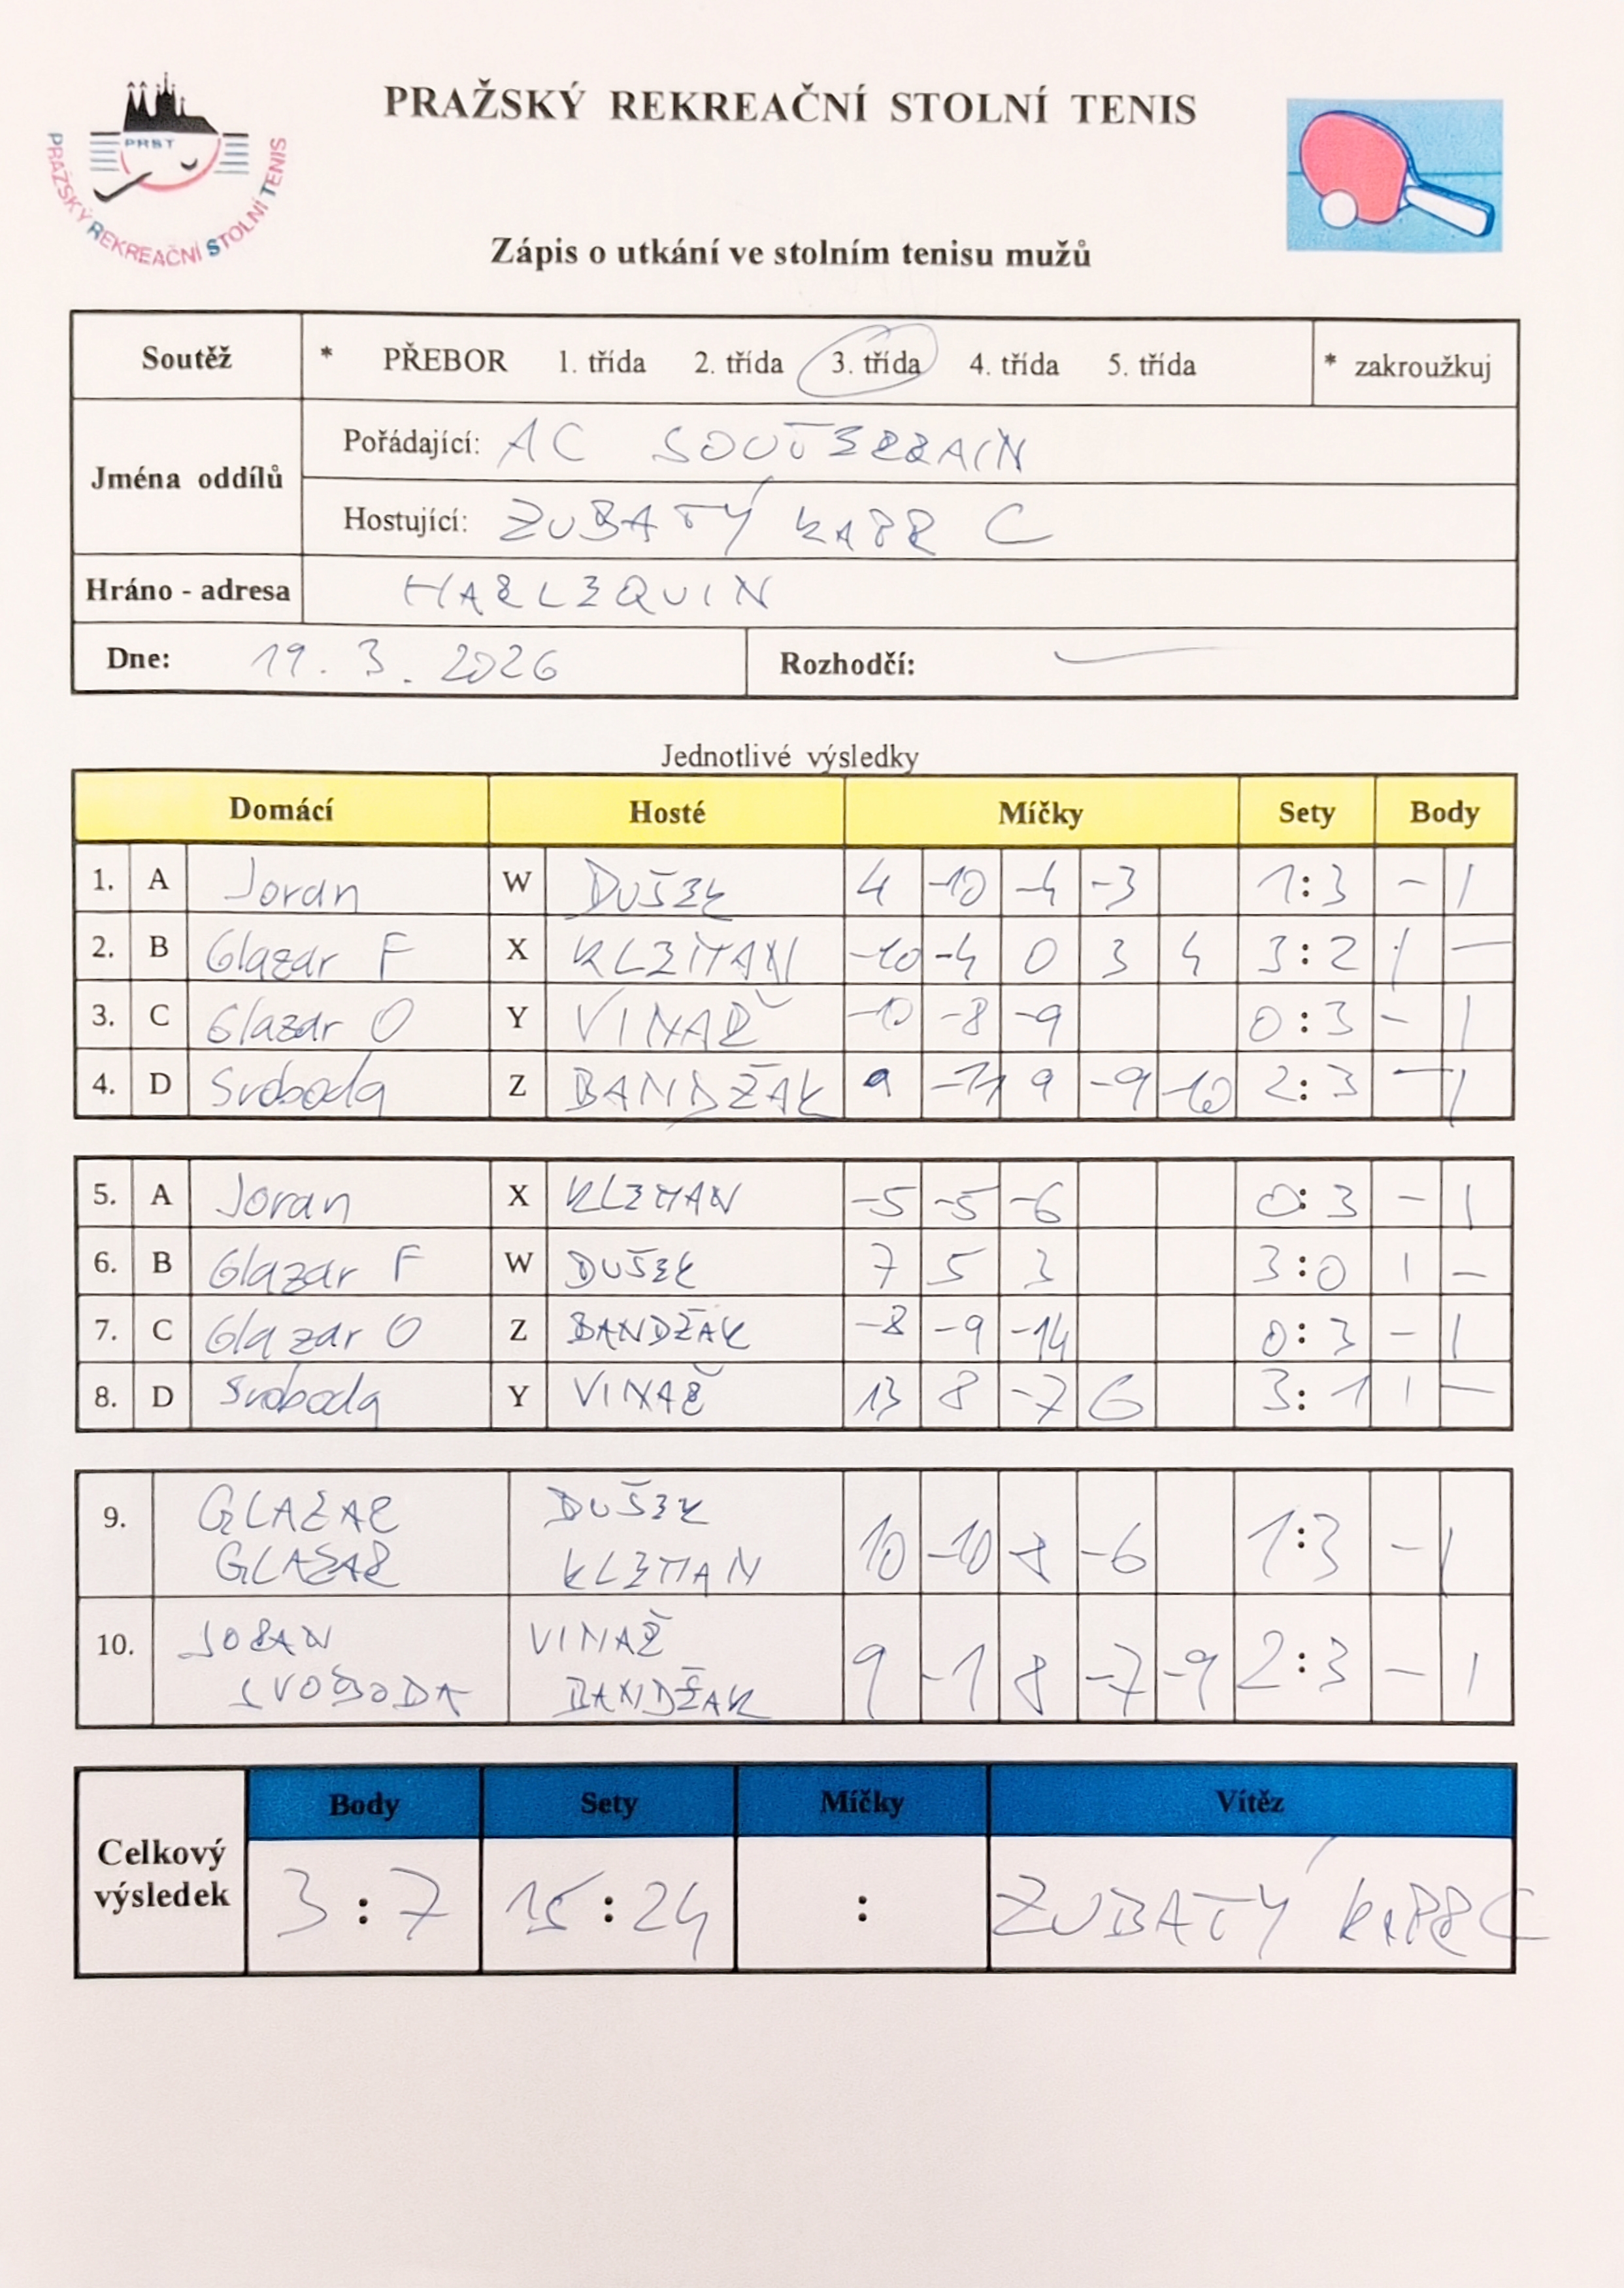 PRAŽSKÝ REKREAČNÍ STOLNÍ TENIS
PRST
PRAŽSKÝ REKREAČNÍ STOLNÍ TENIS
Zápis o utkání ve stolním tenisu mužů
Soutěž * PŘEBOR 1. třída 2. třída 3. třída 4. třída 5. třída * zakroužkuj
Jména oddílů
Pořádající: AC SOUTERRAIN
Hostující: ZUBATÝ KAPR C
Hráno - adresa HARLEQUIN
Dne: 19. 3. 2026 Rozhodčí: —
Jednotlivé výsledky
Domácí Hosté Míčky Sety Body
1. A Joran W DUŠEK 4 -10 -4 -3 1:3 - 1
2. B Glazar F X KLEMAN -10 -4 0 3 4 3:2 1 -
3. C Glazar O Y VINAŘ -10 -8 -9 0:3 - 1
4. D Svoboda Z BANDŽAK 9 -11 9 -9 -10 2:3 - 1
5. A Joran X KLEMAN -5 -5 -6 0:3 - 1
6. B Glazar F W DUŠEK 7 5 3 3:0 1 -
7. C Glazar O Z BANDŽAK -8 -9 -14 0:3 - 1
8. D Svoboda Y VINAŘ 13 8 -7 6 3:1 1 -
9. GLAZAR DUŠEK 10 -10 -8 -6 1:3 - 1
GLAZAR KLEMAN
10. JORAN VINAŘ 9 -1 8 -7 -9 2:3 - 1
SVOBODA BANDŽAK
Celkový výsledek
Body Sety Míčky Vítěz
3:7 15:24 : ZUBATÝ KAPR C